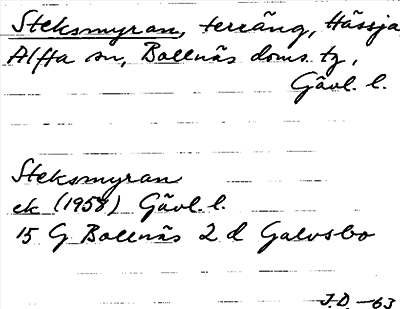 Steksmyran, terräng, Hässja
Alfta sn, Bollnäs doms. tg,
Gävl. l.
Steksmyran
ek (1958) Gävl. l.
15 G Bollnäs 2 d Galvsbo
J.D. -63